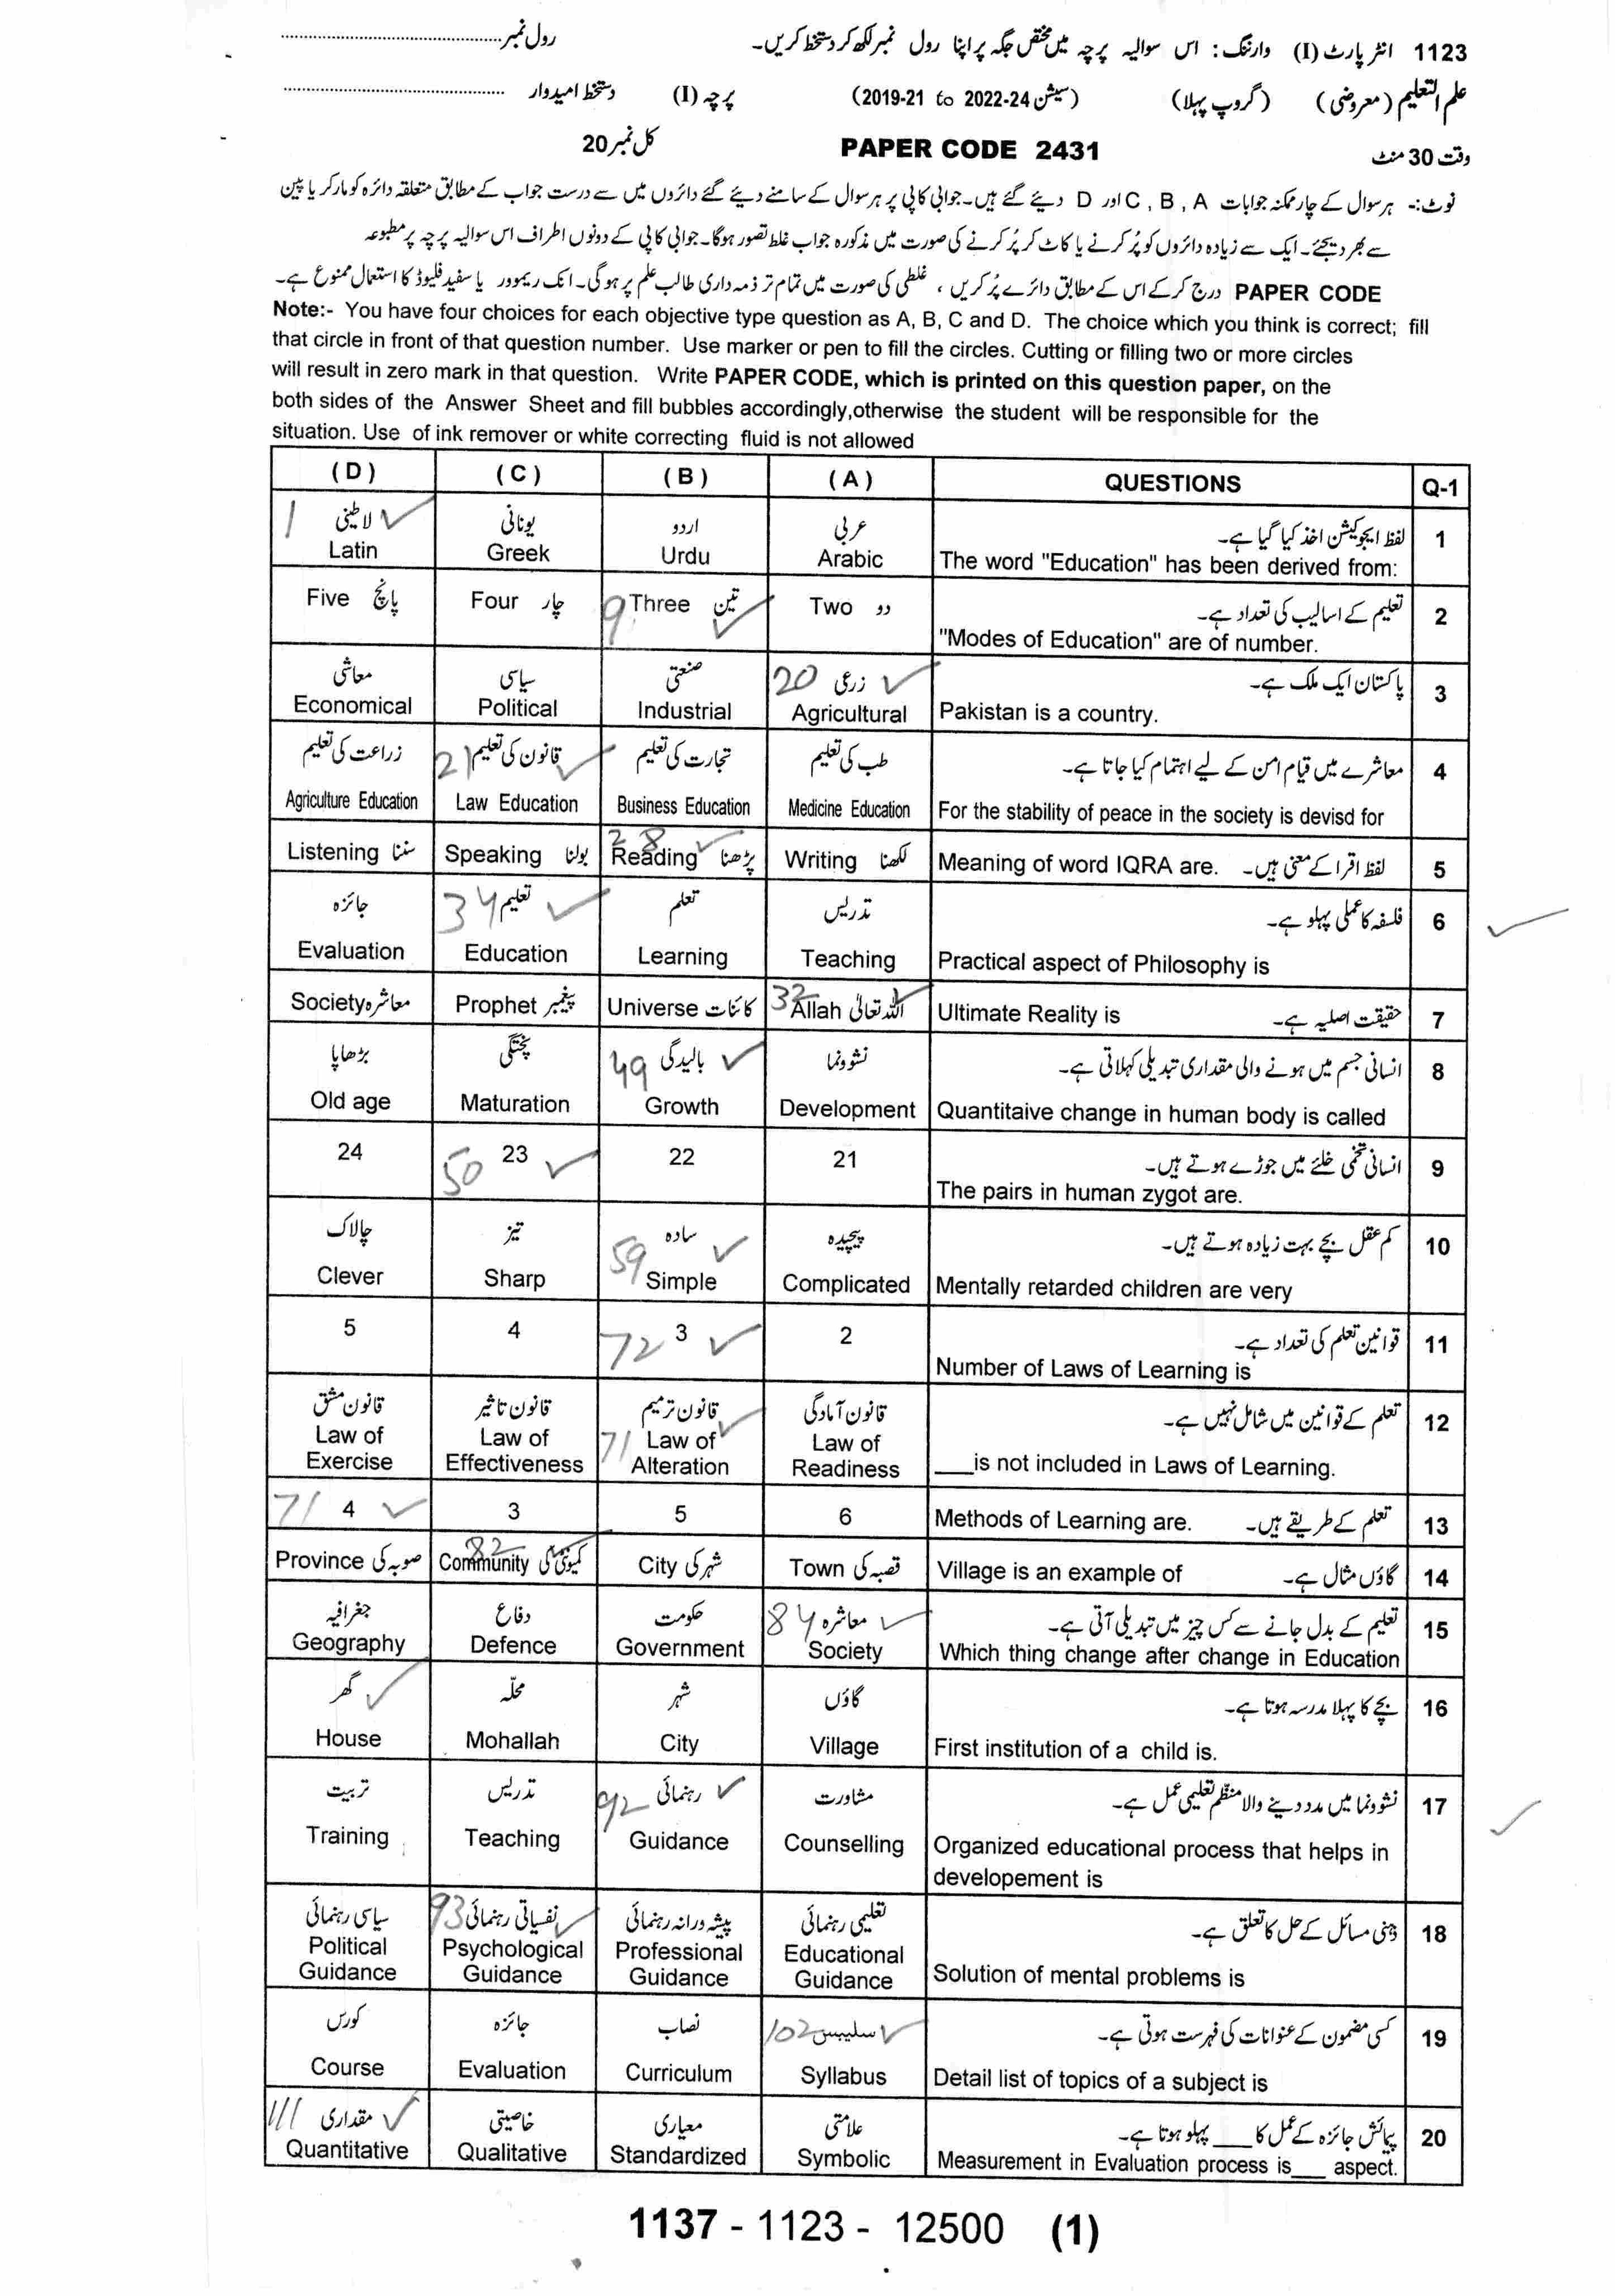 1123 انٹر پارٹ (I) وارننگ: اس سوالیہ پرچہ میں مختص جگہ پر اپنا رول نمبر لکھ کر دستخط کریں۔ رول نمبر
علم التعلیم (معروضی) (گروپ پہلا) (سیشن 2022-24 to 2019-21) پرچہ (I) دستخط امیدوار
وقت 30 منٹ PAPER CODE 2431 کل نمبر 20
نوٹ:- ہر سوال کے چار ممکنہ جوابات A , B , C اور D دیئے گئے ہیں۔ جوابی کاپی پر ہر سوال کے سامنے دیئے گئے دائروں میں سے درست جواب کے مطابق متعلقہ دائرہ کو مارکر یا پین
سے بھر دیجئے۔ ایک سے زیادہ دائروں کو پُر کرنے یا کاٹ کر پُر کرنے کی صورت میں مذکورہ جواب غلط تصور ہوگا۔ جوابی کاپی کے دونوں اطراف اس سوالیہ پرچہ پر مطبوعہ
PAPER CODE درج کر کے اس کے مطابق دائرے پُر کریں ، غلطی کی صورت میں تمام تر ذمہ داری طالب علم پر ہوگی۔ انک ریموور یا سفید فلیوڈ کا استعمال ممنوع ہے۔
Note:- You have four choices for each objective type question as A, B, C and D. The choice which you think is correct; fill
that circle in front of that question number. Use marker or pen to fill the circles. Cutting or filling two or more circles
will result in zero mark in that question. Write PAPER CODE, which is printed on this question paper, on the
both sides of the Answer Sheet and fill bubbles accordingly,otherwise the student will be responsible for the
situation. Use of ink remover or white correcting fluid is not allowed
(D) (C) (B) (A) QUESTIONS Q-1
1 لاطینی یونانی اردو عربی لفظ ایجوکیشن اخذ کیا گیا ہے۔ 1
Latin Greek Urdu Arabic The word "Education" has been derived from:
Five پانچ Four چار 9 Three تین Two دو تعلیم کے اسالیب کی تعداد ہے۔ 2
"Modes of Education" are of number.
معاشی سیاسی صنعتی 20 زرعی پاکستان ایک ملک ہے۔ 3
Economical Political Industrial Agricultural Pakistan is a country.
زراعت کی تعلیم 21 قانون کی تعلیم تجارت کی تعلیم طب کی تعلیم معاشرے میں قیام امن کے لیے اہتمام کیا جاتا ہے۔ 4
Agriculture Education Law Education Business Education Medicine Education For the stability of peace in the society is devisd for
Listening سننا Speaking بولنا 28 Reading پڑھنا Writing لکھنا Meaning of word IQRA are. لفظ اقرا کے معنی ہیں۔ 5
جائزہ 34 تعلیم تعلم تدریس فلسفہ کا عملی پہلو ہے۔ 6
Evaluation Education Learning Teaching Practical aspect of Philosophy is
Society معاشرہ Prophet پیغمبر Universe کائنات 32 Allah اللہ تعالیٰ Ultimate Reality is حقیقت اصلیہ ہے۔ 7
بڑھاپا پختگی 49 بالیدگی نشوونما انسانی جسم میں ہونے والی مقداری تبدیلی کہلاتی ہے۔ 8
Old age Maturation Growth Development Quantitaive change in human body is called
24 50 23 22 21 انسانی تخمی خلئے میں جوڑے ہوتے ہیں۔ 9
The pairs in human zygot are.
چالاک تیز 59 سادہ پیچیدہ کم عقل بچے بہت زیادہ ہوتے ہیں۔ 10
Clever Sharp Simple Complicated Mentally retarded children are very
5 4 72 3 2 قوانین تعلم کی تعداد ہے۔ 11
Number of Laws of Learning is
قانون مشق قانون تاثیر قانون ترمیم قانون آمادگی تعلم کے قوانین میں شامل نہیں ہے۔ 12
Law of Law of 71 Law of Law of
Exercise Effectiveness Alteration Readiness ___is not included in Laws of Learning.
71 4 3 5 6 Methods of Learning are. تعلم کے طریقے ہیں۔ 13
Province صوبہ کی 82 Community کمیونٹی کی City شہر کی Town قصبہ کی Village is an example of گاؤں مثال ہے۔ 14
جغرافیہ دفاع حکومت 84 معاشرہ تعلیم کے بدل جانے سے کس چیز میں تبدیلی آتی ہے۔ 15
Geography Defence Government Society Which thing change after change in Education
گھر محلّہ شہر گاؤں بچے کا پہلا مدرسہ ہوتا ہے۔ 16
House Mohallah City Village First institution of a child is.
تربیت تدریس 92 رہنمائی مشاورت نشوونما میں مدد دینے والا منظّم تعلیمی عمل ہے۔ 17
Training Teaching Guidance Counselling Organized educational process that helps in
developement is
سیاسی رہنمائی 93 نفسیاتی رہنمائی پیشہ ورانہ رہنمائی تعلیمی رہنمائی ذہنی مسائل کے حل کا تعلق ہے۔ 18
Political Psychological Professional Educational
Guidance Guidance Guidance Guidance Solution of mental problems is
کورس جائزہ نصاب 102 سلیبس کسی مضمون کے عنوانات کی فہرست ہوتی ہے۔ 19
Course Evaluation Curriculum Syllabus Detail list of topics of a subject is
111 مقداری خاصیتی معیاری علامتی پیمائش جائزہ کے عمل کا ___ پہلو ہوتا ہے۔ 20
Quantitative Qualitative Standardized Symbolic Measurement in Evaluation process is___ aspect.
1137 - 1123 - 12500 (1)